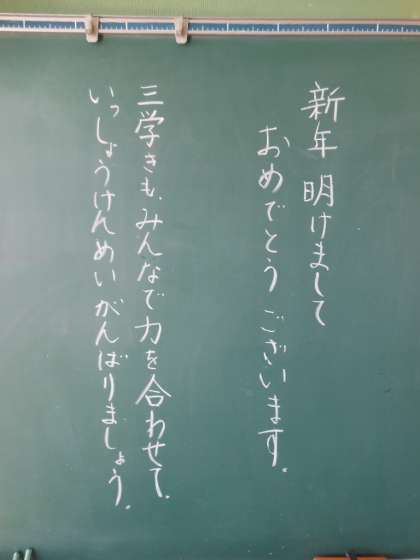 新年 明けまして
おめでとう ございます。
三学きも、みんなで力を合わせて、
いっしょうけんめいがんばりましょう。